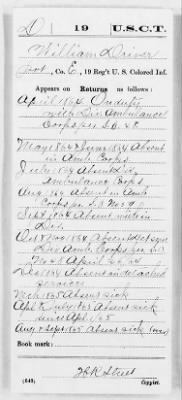 D | 19 | U.S.C.T.
William Driver
Pvt, Co. E, 19 Reg't U. S. Colored Inf.
Appears on Returns as follows:
April 1864 On duty
with Div. Ambulance
Corps per S.O. 48
May 1864 June 1864 Absent
in Amb. Corps.
July 1864 Absent
Ambulance Corps
Aug. 1864 Absent in Amb
Corps per S.O. No
Sept 1864 Absent with in
Div.
Oct Nov 1864 Absent
Div. Amb. Corps per S.O.
No 48 April 64
Dec 1864 Absent on detached
service
Mch 1865 Absent sick
Apl to July 1865 Absent sick
since Apl 1, 65
Aug & Sept 1865 Absent sick
Book mark:
Street
(546) Copyist.